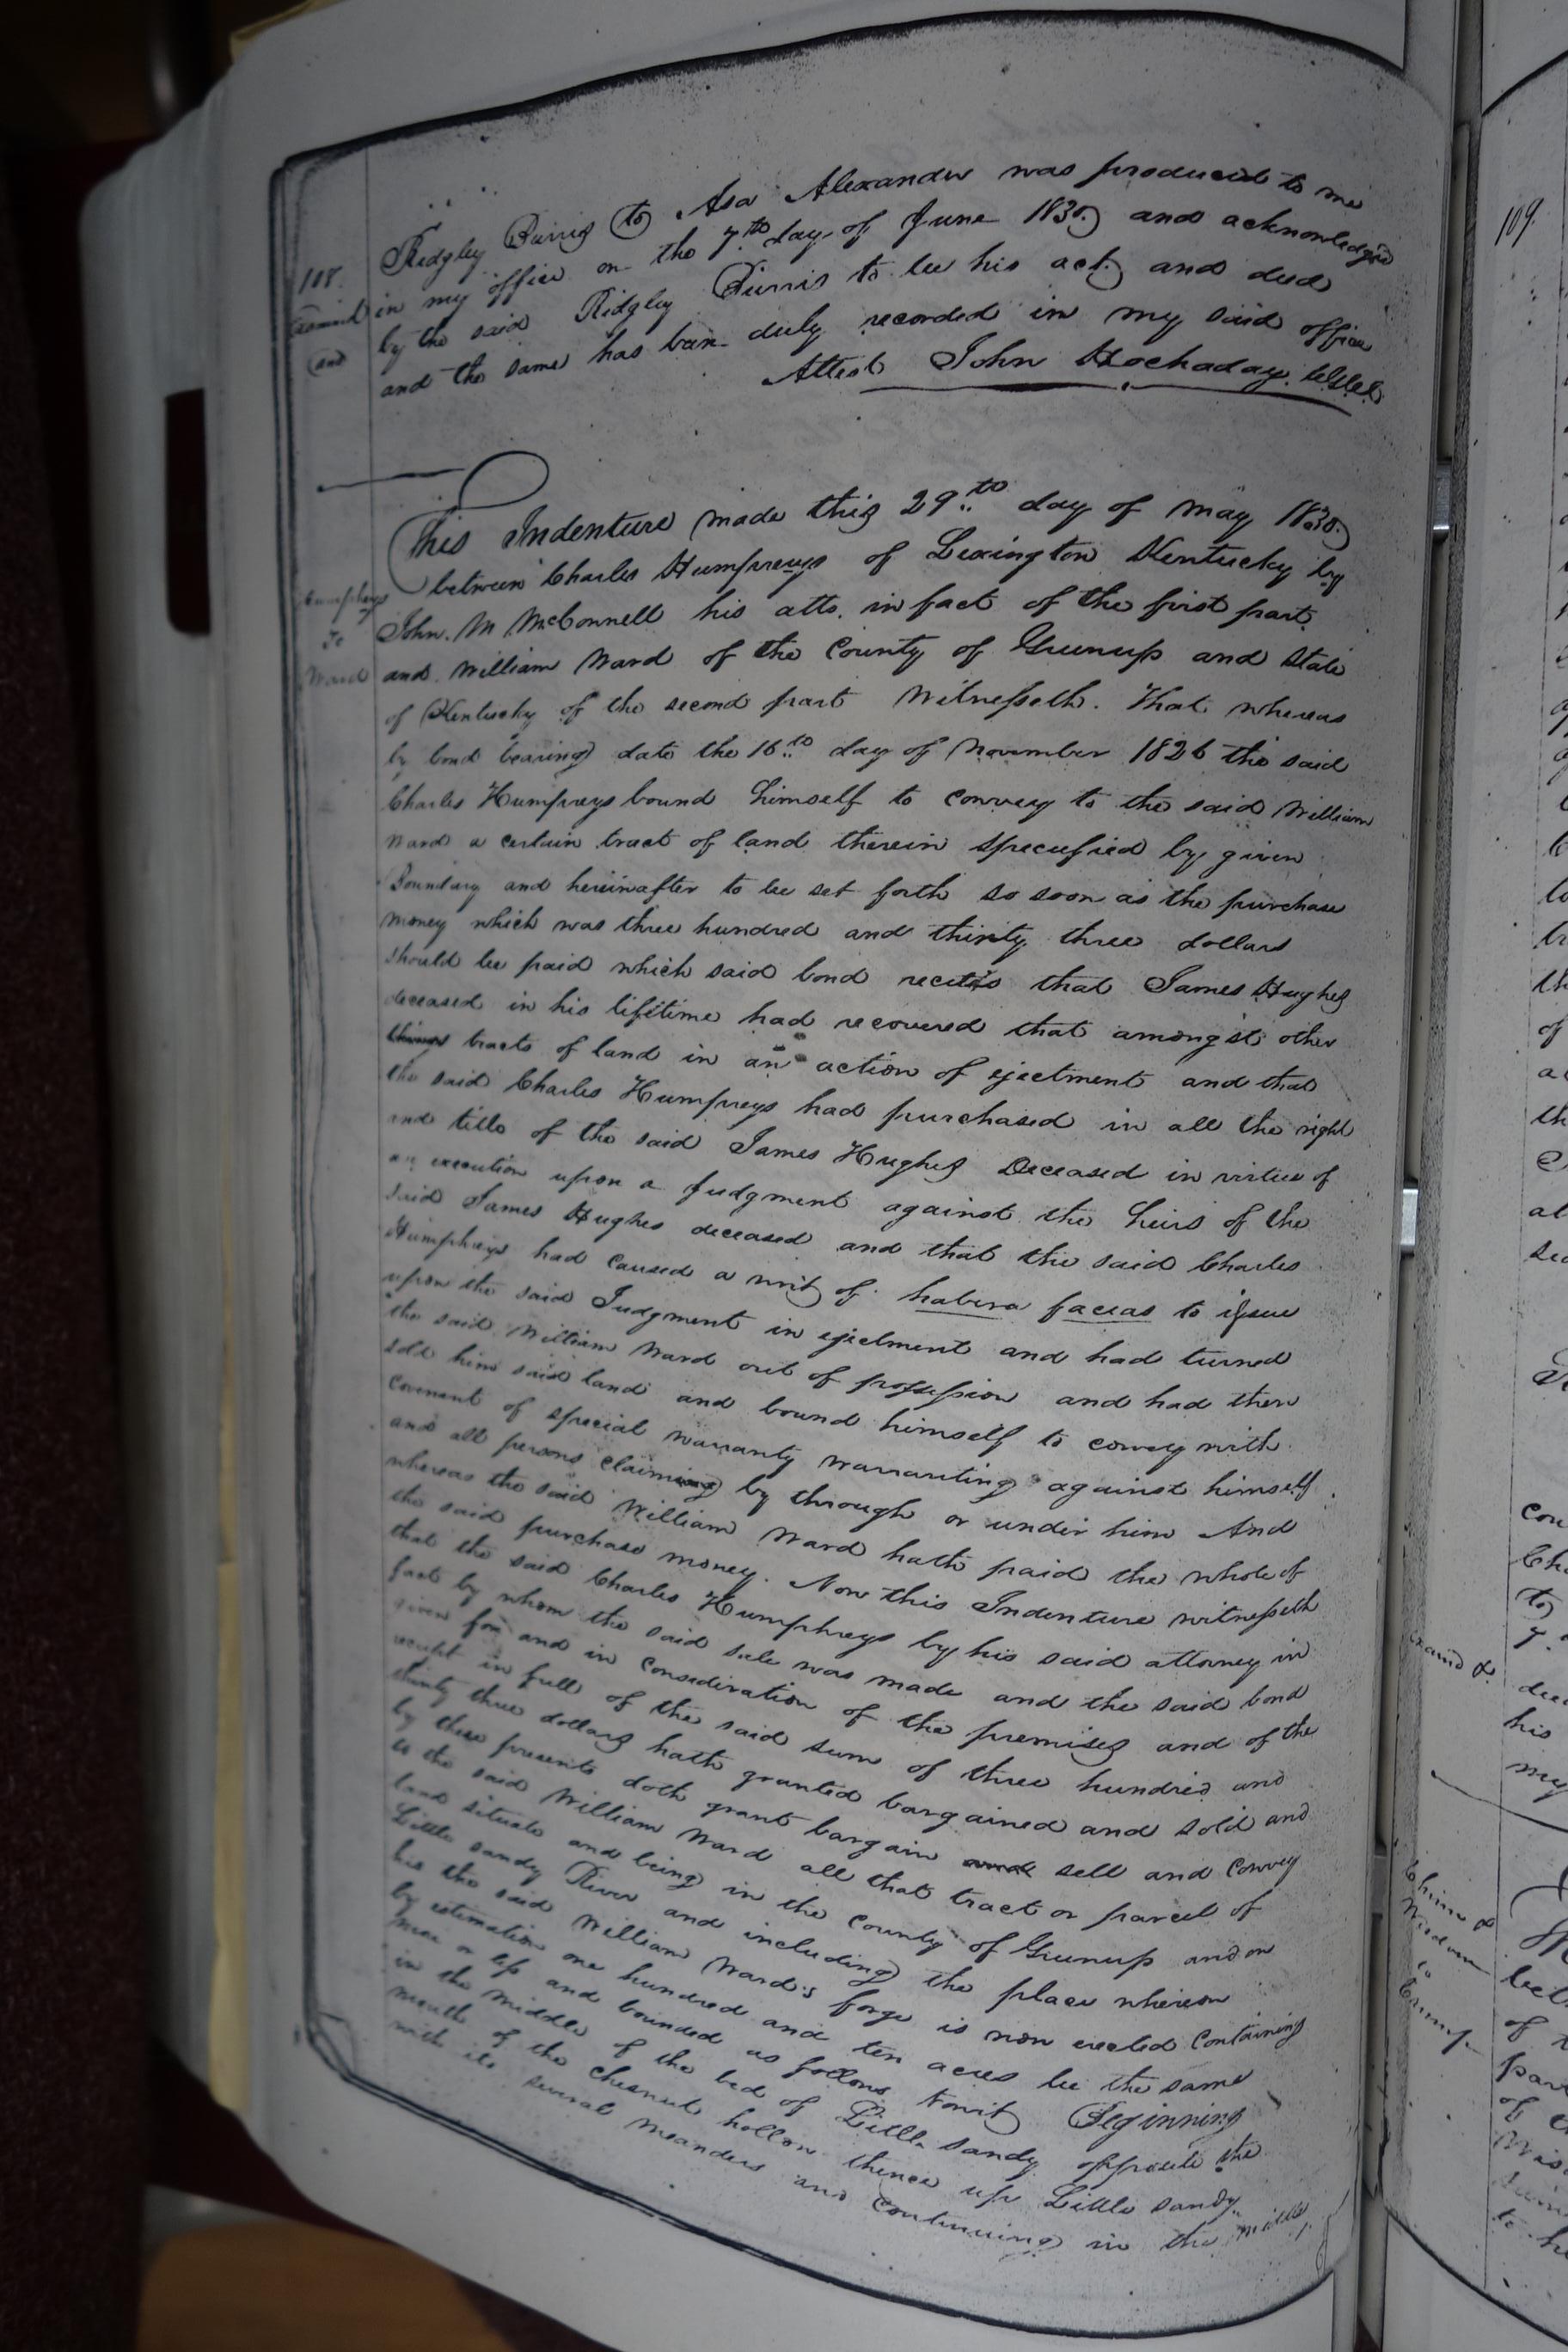 108.
Examd
and
Ridgley Burris to Asa Alexander was produced to me
in my office on the 7th day of June 1830 and acknowledged
by the said Ridgley Burris to be his act and deed
and the same has been duly recorded in my said office
Attest John Hockaday
This Indenture made this 29th day of may 1830
between Charles Humphreys of Lexington Kentucky by
Humphreys
to
Ward
John. M McConnell his atto. in fact of the first part
and William Ward of the County of Greenup and State
of Kentucky of the second part Witnesseth. That whereas
by bond bearing date the 16th day of November 1826 the said
Charles Humpreys bound himself to convey to the said William
Ward a certain tract of land therein specified by given
Boundary and hereinafter to be set forth so soon as the purchase
money which was three hundred and thirty three dollars
should be paid which said bond recites that James Hughes
deceased in his lifetime had recovered that amongst other
tracts of land in an action of ejectment and that
the said Charles Humpreys had purchased in all the right
and title of the said James Hughes Deceased in virtue of
an execution upon a Judgment against the heirs of the
said James Hughes deceased and that the said Charles
Humphreys had caused a writ of habera facias to issue
upon the said Judgment in ejectment and had turned
the said William Ward out of possession and had then
sold him said land and bound himself to convey with
covenent of special warranty warranting against himself
and all persons claiming by through or under him And
whereas the said William Ward hath paid the whole of
the said purchase money. Now this Indenture witnesseth
that the said Charles Humphreys by his said attorney in
fact by whom the said sale was made and the said bond
given for and in consideration of the premises and of the
receipt in full of the said sum of three hundred and
thirty three dollars hath granted bargained and sold and
by these presents doth grant bargain and sell and convey
to the said William Ward all that tract or parcel of
land situate and being in the County of Greenup and on
Little sandy River and including the place whereon
his the said William Ward's forge is now erected containing
by estimation one hundred and ten acres be the same
more or less and bounded as follows towit Beginning
in the middle of the bed of Little sandy opposite the
mouth of the chesnut hollow thence up Little sandy
with its several meanders and continuing in the middle
109.